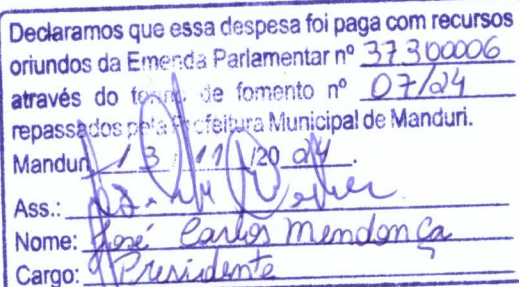 Declaramos que essa despesa foi paga com recursos
oriundos da Emenda Parlamentar nº 37300006
através do termo de fomento nº 07/24
repassados pela Prefeitura Municipal de Manduri.
Manduri 13/11/2024.
Ass.:
Nome: José Carlos Mendonça
Cargo: Presidente